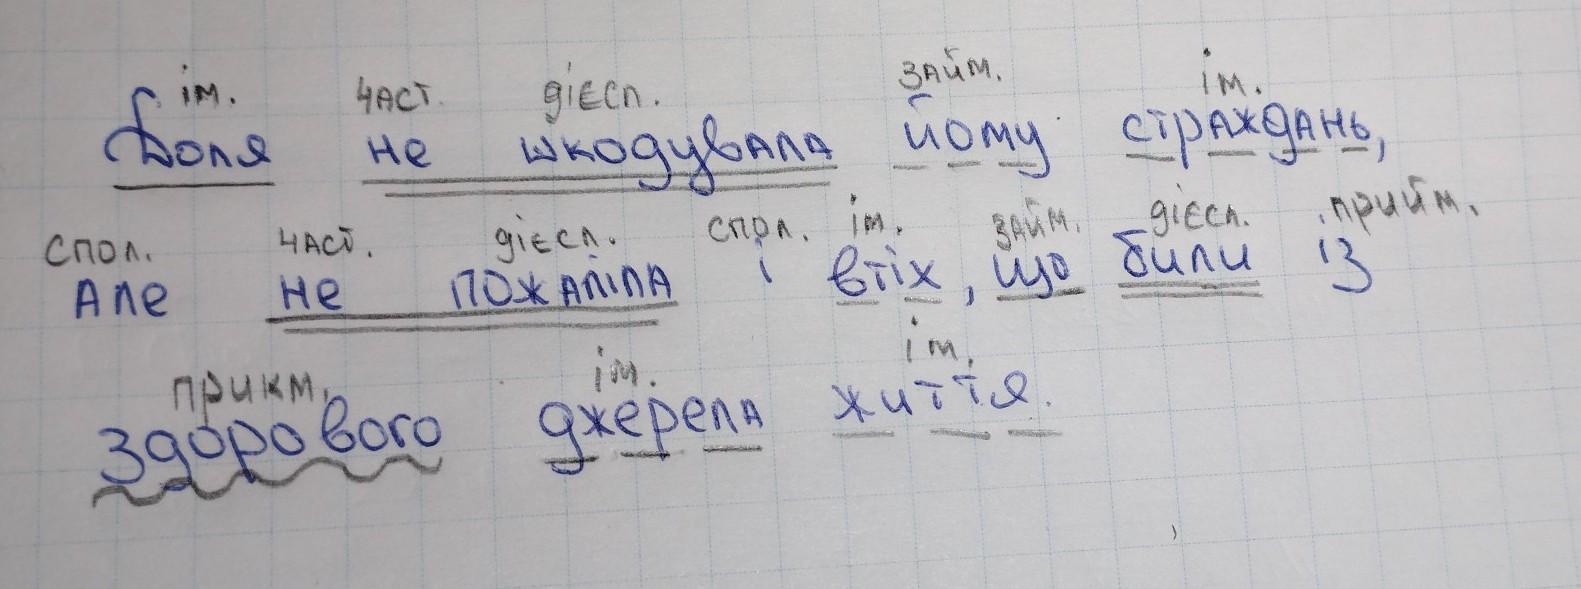 ім. част. дієсл. займ. ім.
Доля не шкодувала йому страждань,
спол. част. дієсл. спол. ім. займ. дієсл. прийм.
Але не пожаліла і втіх, що били із
прикм. ім. ім.
здорового джерела життя.